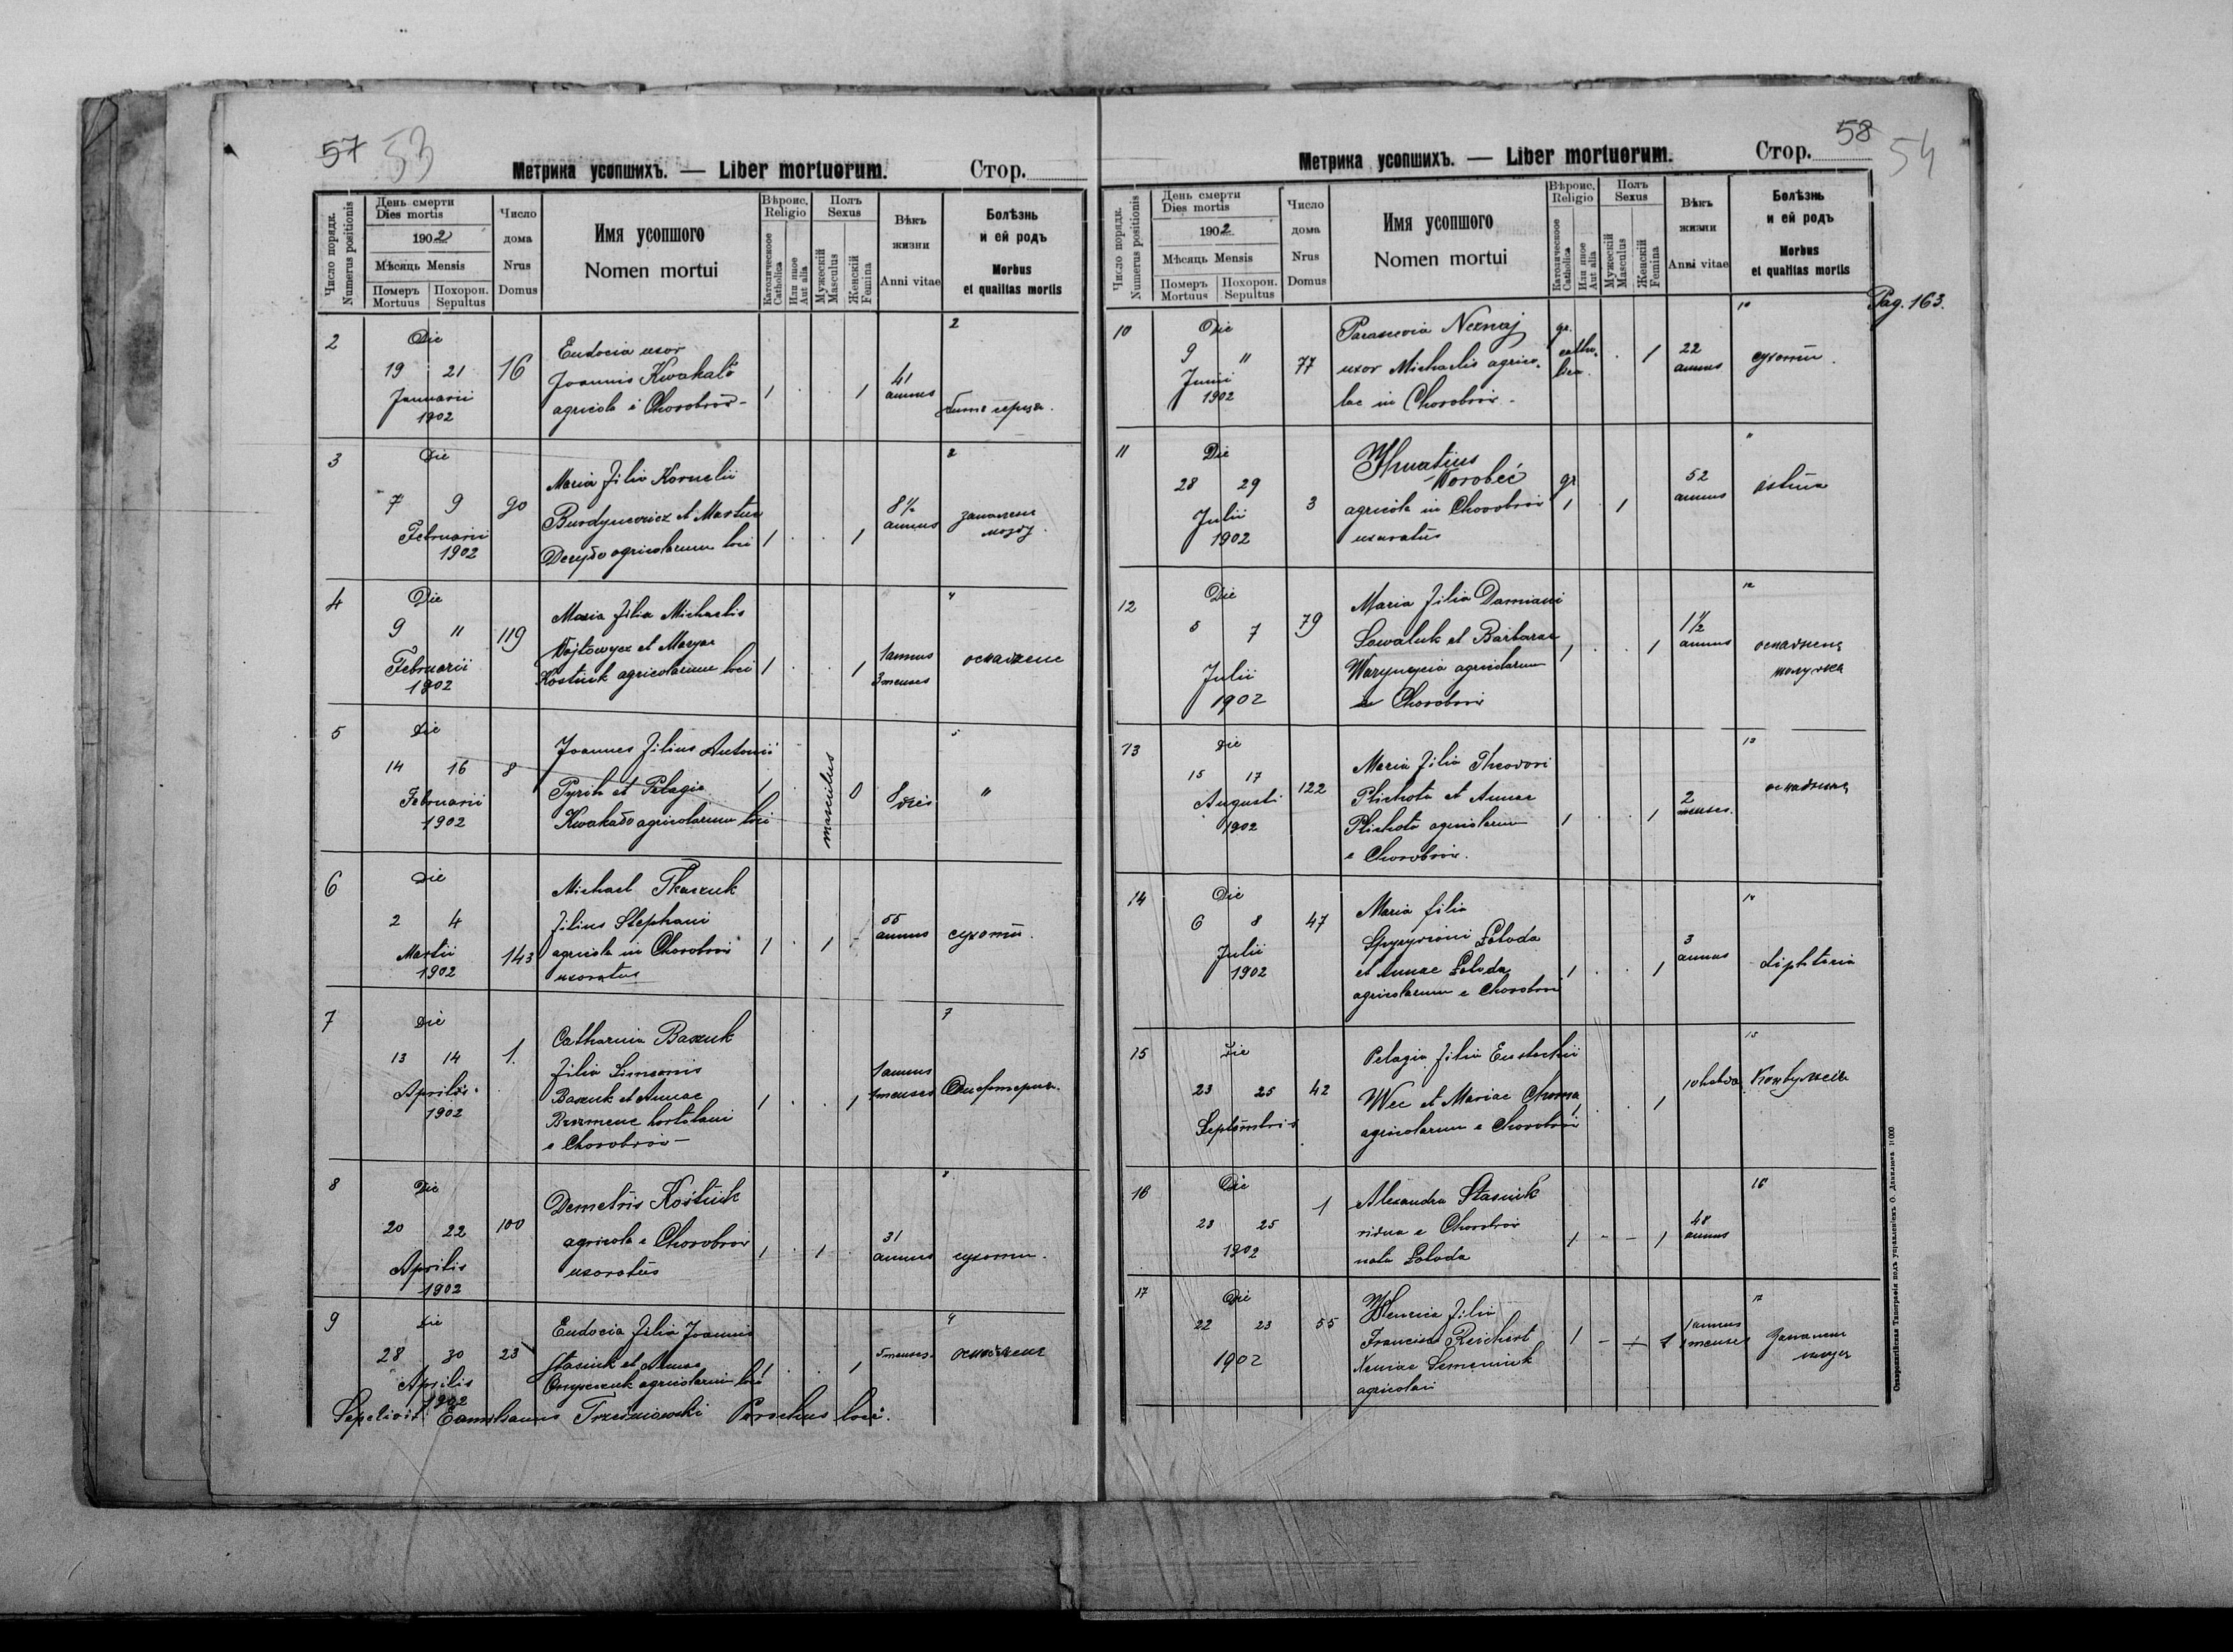 57 53
Метрика усопшихъ. — Liber mortuorum. Стор.
Число порядк.
Numerus positionis
День смерти
Dies mortis
1902
Мѣсяць Mensis
Померъ
Mortuus
Похорон.
Sepultus
Число
дома
Nrus
Domus
Имя усопшого
Nomen mortui
Вѣроис.
Religio
Католическое
Catholica
Или иное
Aut alia
Полъ
Sexus
Мужескій
Masculus
Женскій
Femina
Вѣкъ
жизни
Anni vitae
Болѣзнь
и ей родъ
Morbus
et qualitas mortis
2
Die
19 21
Januarii
1902
16
Eudocia uxor
Joannis
agricola e Chorobrów
1 . . 1
41
annus
2
3
Die
7 9
Februarii
1902
90
Maria filia Kornelii
et
agricolarum loci
1 . . 1
8 1/2
annus
2
4
Die
9 11
Februarii
1902
119
Maria filia Michaelis
Wojtowycz et
Kostiuk agricolarum loci
1 . . 1
1 annus
3 menses
4
5
Die
14 16
Februarii
1902
8
Joannes filius Antonii
Pyrih et Pelagia
agricolarum loci
1 .
masculus
0
8 dies
5
"
6
Die
2 4
Martii
1902
143
Michael Tkaczuk
filius Stephani
agricola in Chorobrów
uxoratus
1 . 1 -
55
annus
сухоти.
7
Die
13 14
Aprilis
1902
1.
Catharina Baszuk
filia Simeonis
Baszuk et Annae
hortolani
e Chorobrów —
1 . . 1
1 annus
menses
7
8
Die
20 22
Aprilis
1902
100
Demetris Kostiuk
agricola e Chorobrow
uxoratus
1 . 1 .
31
annus
8
сухоти.
9
Die
28 30
Aprilis
1902
23
Eudocia filia Joannis
Stasiuk et Annae
agricolarum loci
1 . . 1
5 menses.
Sepelivit Parochus loci.
58 54
Метрика усопшихъ. — Liber mortuorum. Стор.
Число порядк.
Numerus positionis
День смерти
Dies mortis
1902
Мѣсяць Mensis
Померъ
Mortuus
Похорон.
Sepultus
Число
дома
Nrus
Domus
Имя усопшого
Nomen mortui
Вѣроис.
Religio
Католическое
Catholica
Или иное
Aut alia
Полъ
Sexus
Мужескій
Masculus
Женскій
Femina
Вѣкъ
жизни
Anni vitae
Болѣзнь
и ей родъ
Morbus
et qualitas mortis
Pag. 163.
10
Die
9 11
Junii
1902
77
Parascevia
uxor Michaelis agrico-
lae in Chorobrów -
gr.
catho-
lica.
. 1
22
annus
10
сухоти.
11
Die
28 29
Julii
1902
3
Worobeć
agricola in Chorobrów
uxoratus
gr
1 . 1
52
annus
11
astma
12
Die
5 7
Julii
1902
79
Maria filia Damiani
Sawaluk et Barbarae
agricolarum
in Chorobrów
1 . . 1
1 1/2
annus
12
13
Die
15 17
Augusti
1902
122
Maria filia Theodori
Plichota et Annae
Plichota agricolarum
e Chorobrów.
1 . . 1
2
menses.
13
14
Die
6 8
Julii
1902
47
Maria filia
Łoboda
et Annae Łoboda
agricolarum e Chorobrów
1 . . 1
3
annus
14
15
Die
23 25
Septembris
42
Pelagia filia Eustachii
Wec et Mariae Choma
agricolarum e Chorobrów
1 . . 1
15
16
Die
23 25
1902
1
Alexandra Stasiuk
vidua e Chorobrów
nata Łoboda
1 - - 1
48
annus
16
17
Die
22 23
1902
55
filia
Francisci Reichert
Xeniae Semeniuk
agricolari
1 - + 1
1 annus
1 menses
17
Ставропигійская Типографія подъ управленіемъ О. Данилюка